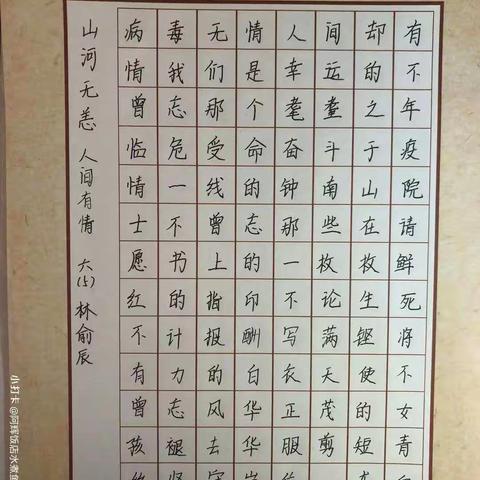 山河无恙 人间有情 六(5) 林俞辰
病毒无情人间却有
情我们是幸运的不
曾忘那个耄耋之年
临危受命奋斗于疫
情一线的钟南山院
士不曾忘那些在请
愿书上的一枚枚鲜
红的指印不论生死
不计报酬写满铿将
有力的白衣天使不
曾忘风华正茂的女
孩褪去华服剪短青
小打卡 @阿辉饭店水煮